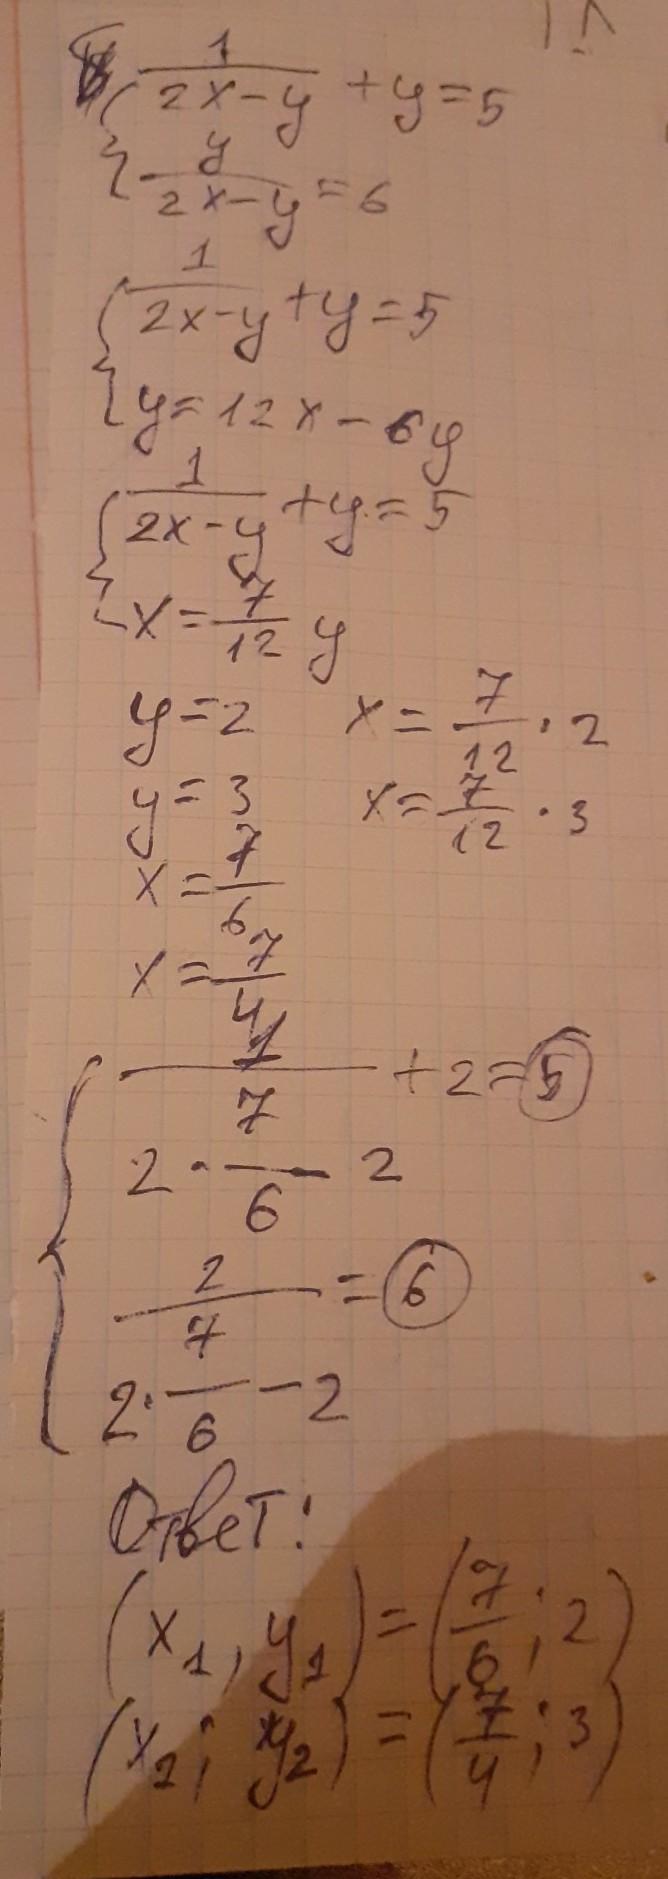 { 1/(2x-y) + y = 5
{ y/(2x-y) = 6
{ 1/(2x-y) + y = 5
{ y = 12x - 6y
{ 1/(2x-y) + y = 5
{ x = 7/12 y
y = 2 x = 7/12 · 2
y = 3 x = 7/12 · 3
x = 7/6
x = 7/4
{ 1/(2 · 7/6 - 2) + 2 = 5
{ 2/(2 · 7/6 - 2) = 6
Ответ:
(x₁, y₁) = (7/6; 2)
(x₂; y₂) = (7/4; 3)